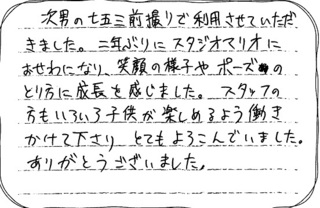 次男の七五三前撮りで利用させていただ
きました。二年ぶりにスタジオマリオに
おせわになり、笑顔の様子やポーズの
とり方に成長を感じました。スタッフの
方もいろいろ子供が楽しめるよう働き
かけて下さり とてもよろこんでいました。
ありがとうございました。